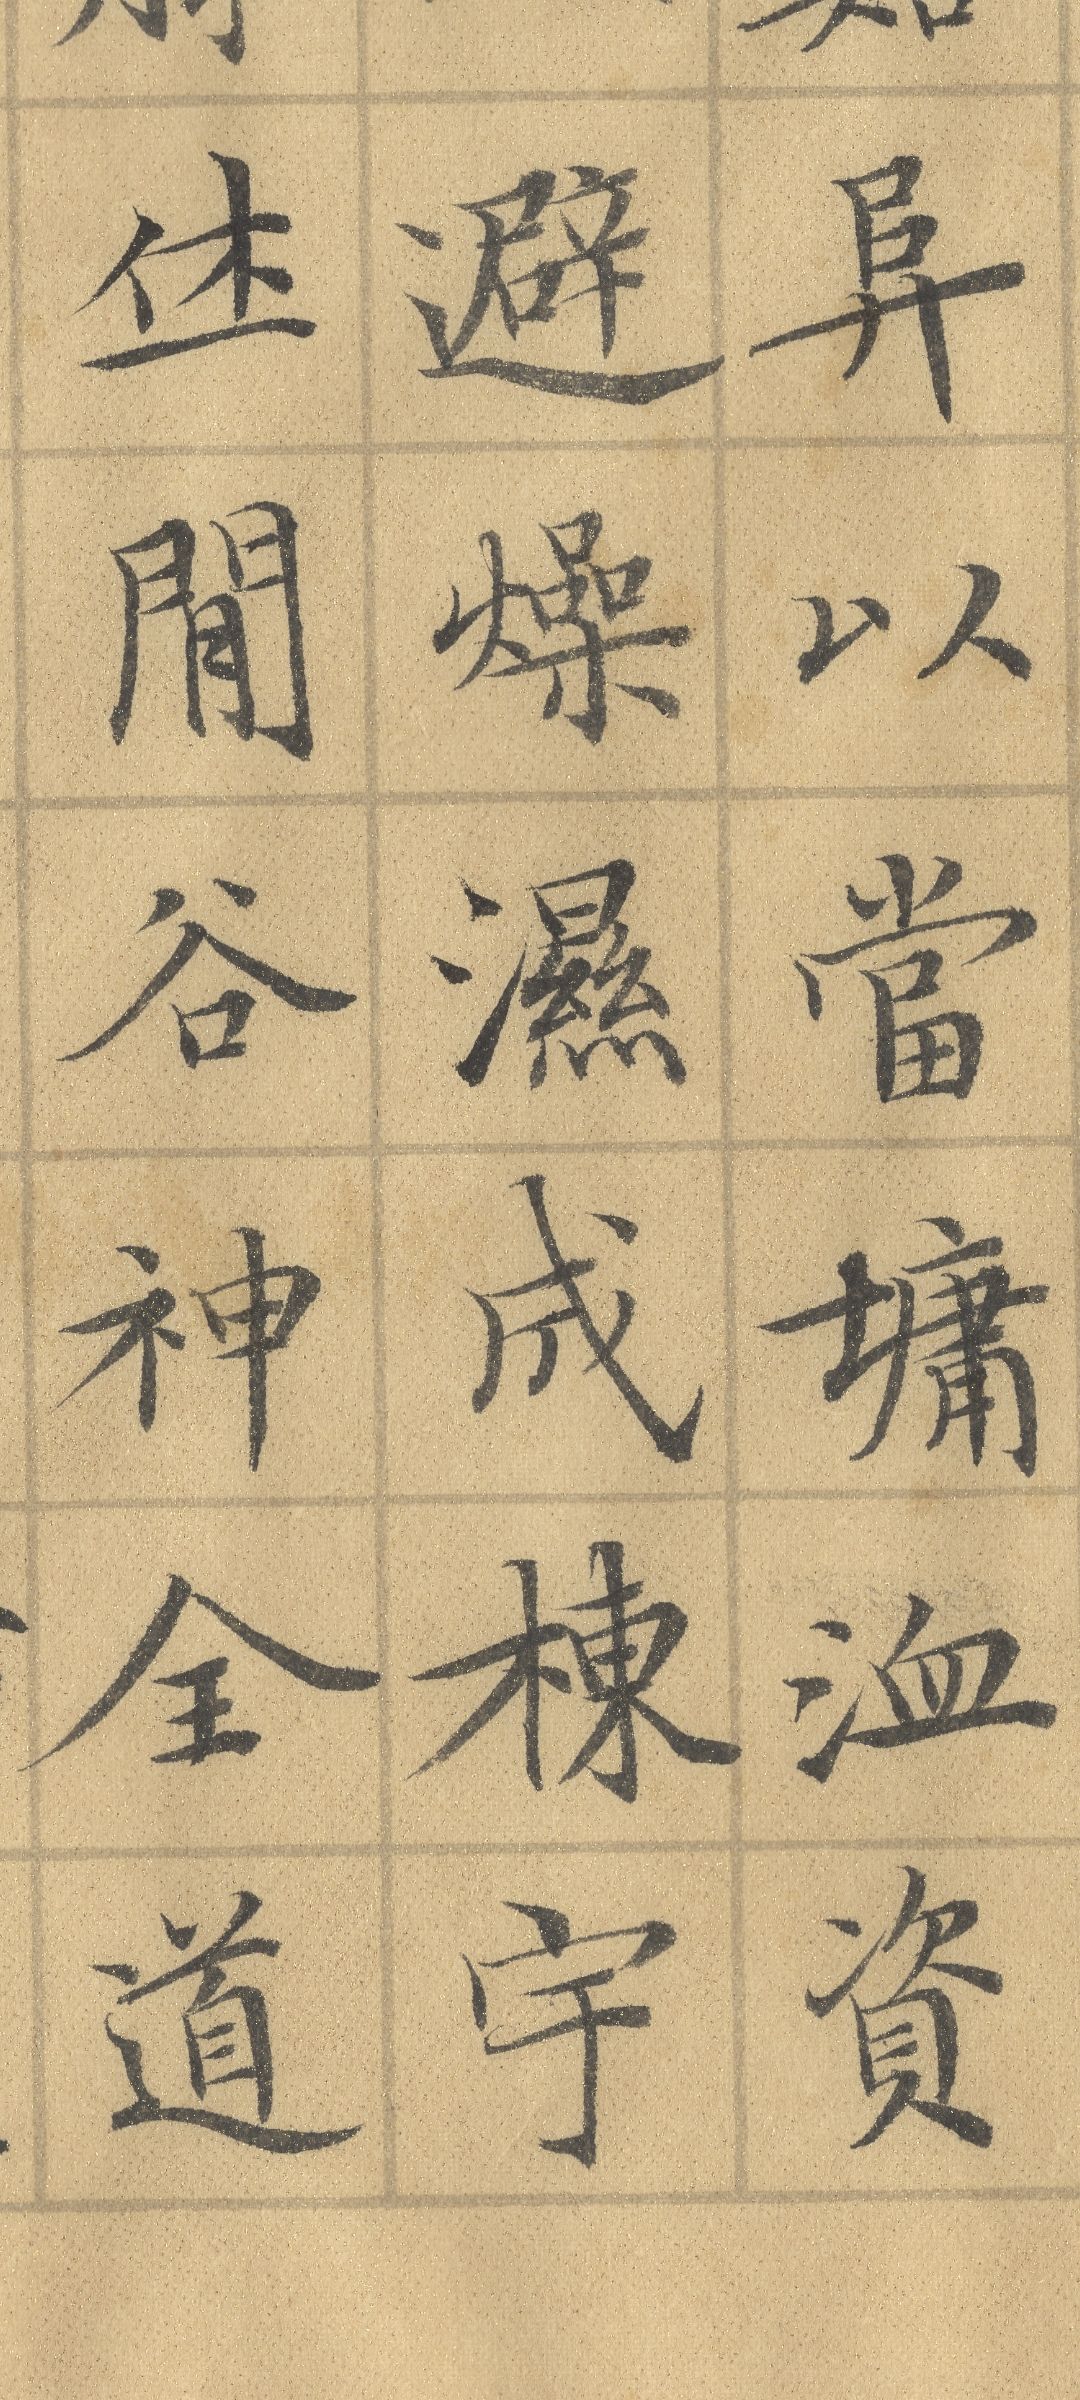 阜以當墉洫資
避燥濕成棟宇
閒谷神全道